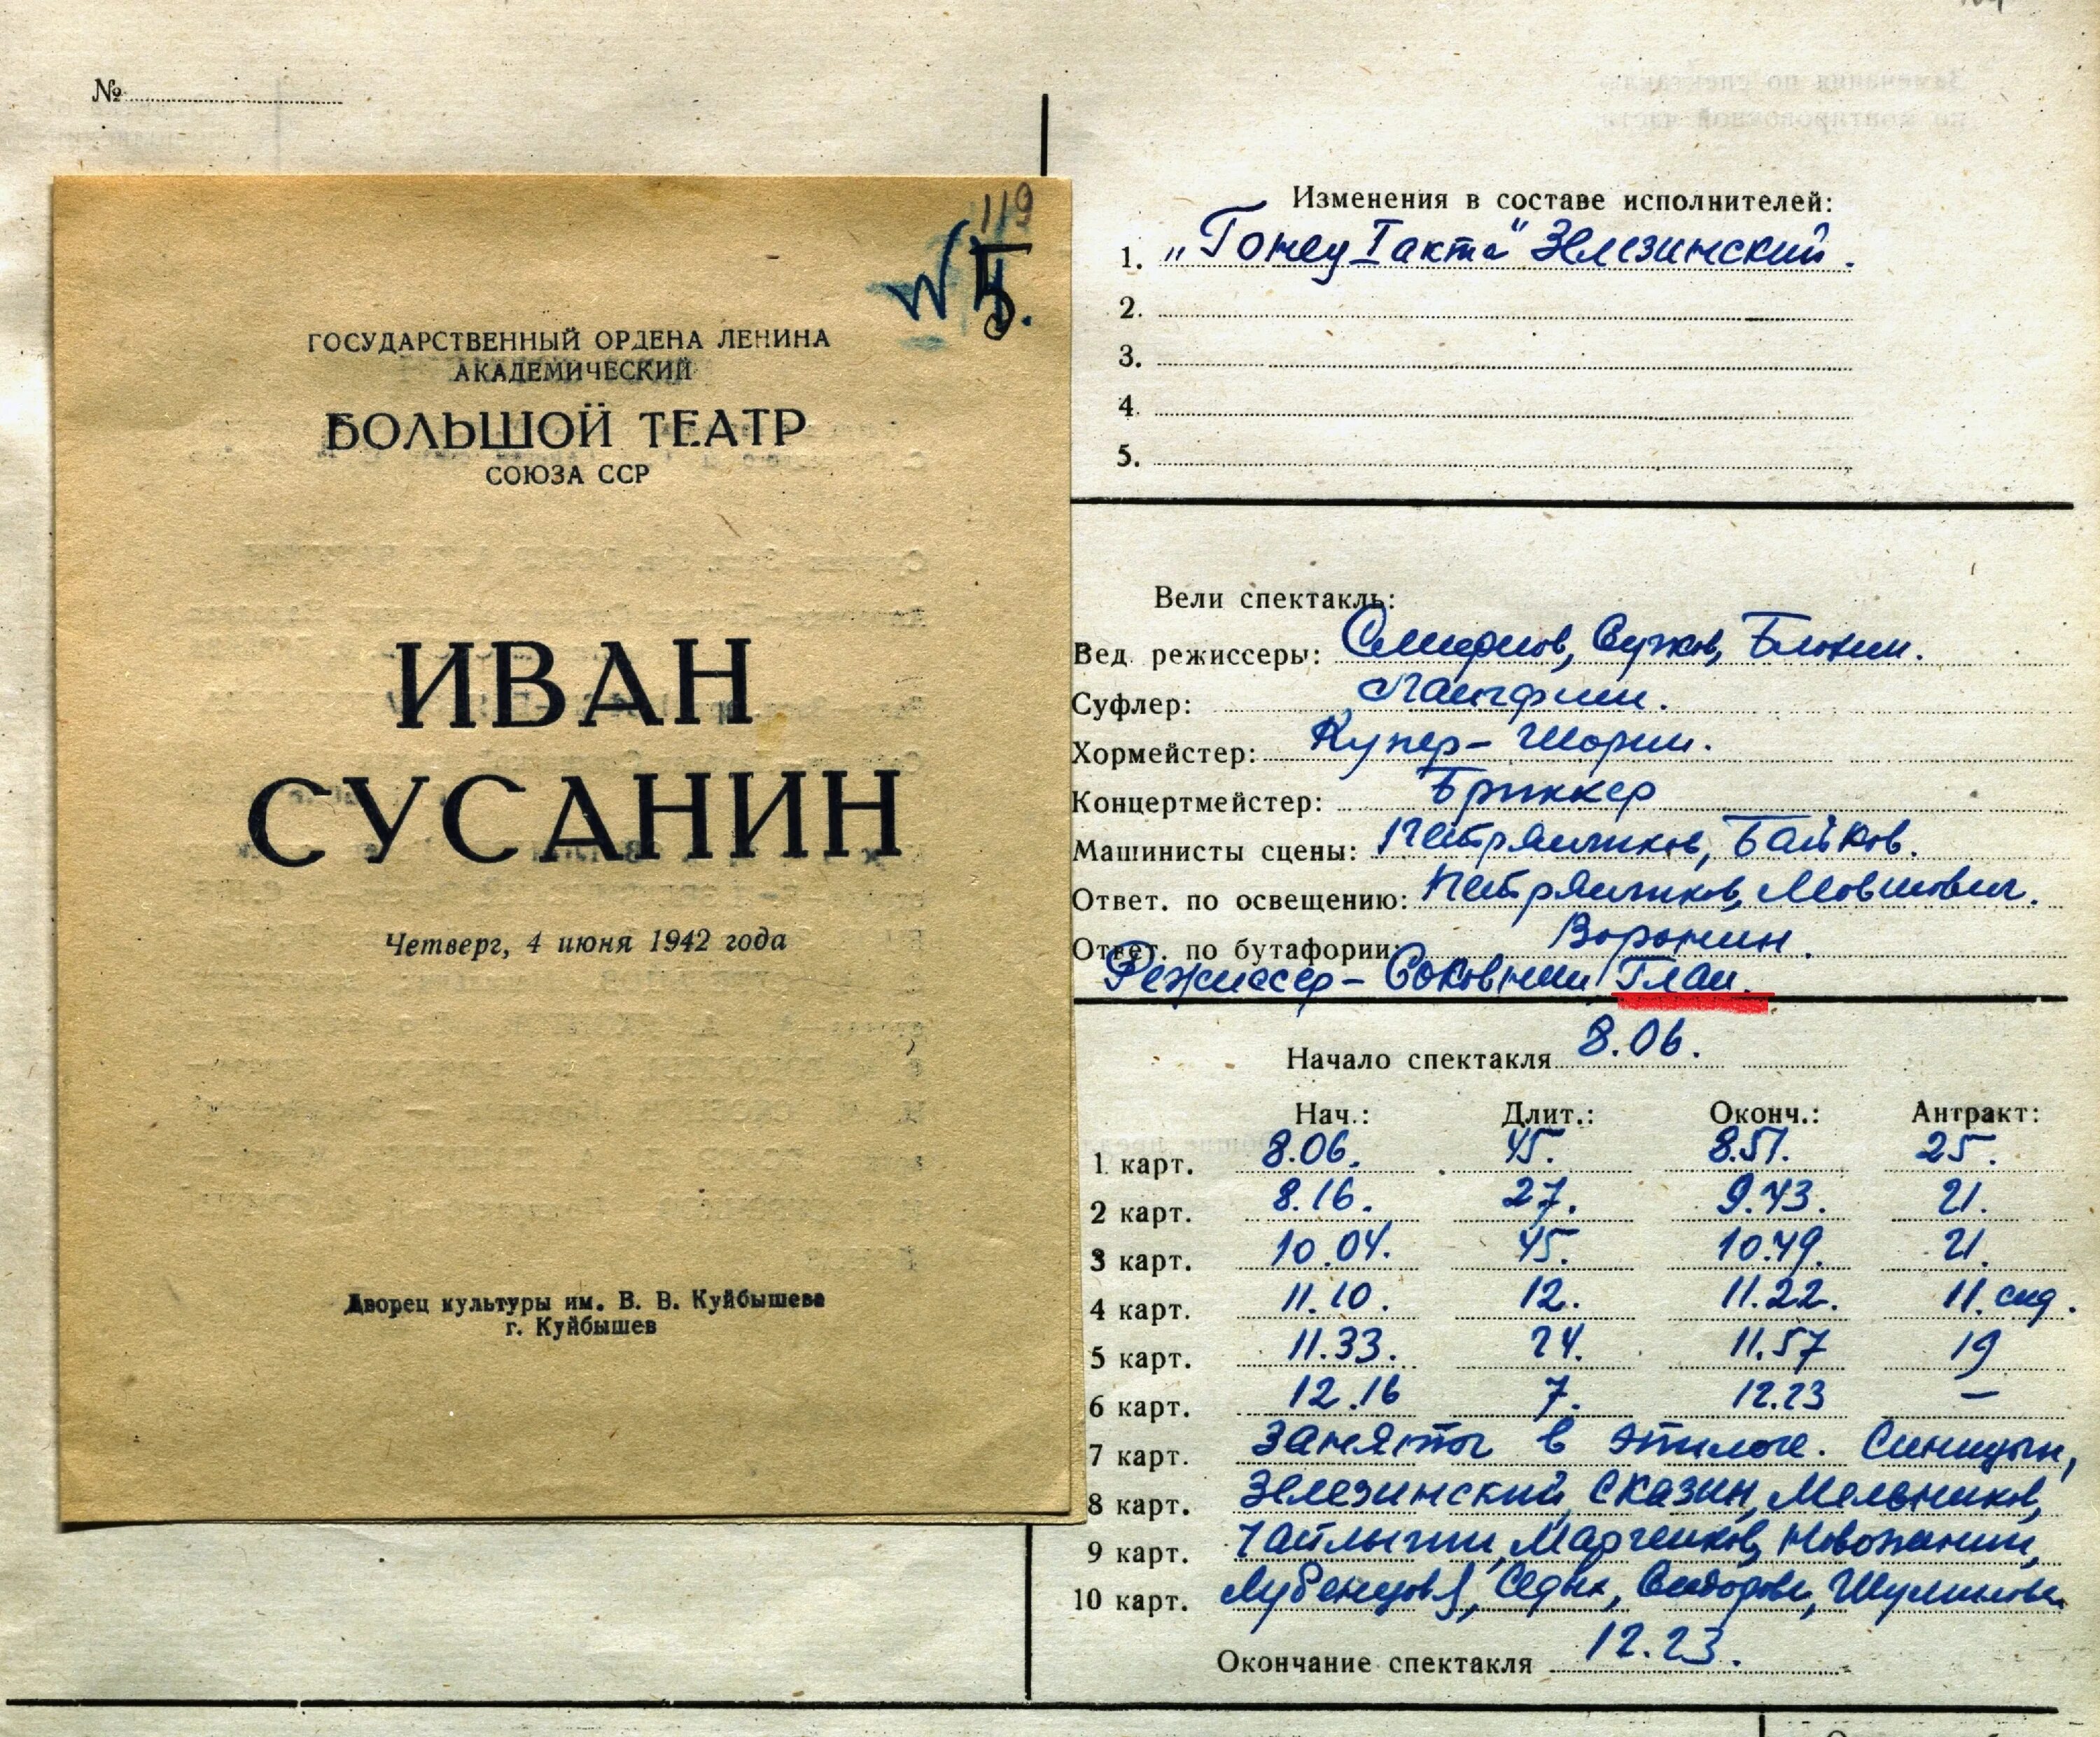 №
119
№ 5.
ГОСУДАРСТВЕННЫЙ ОРДЕНА ЛЕНИНА
АКАДЕМИЧЕСКИЙ
БОЛЬШОЙ ТЕАТР
СОЮЗА ССР
ИВАН
СУСАНИН
Четверг, 4 июня 1942 года
Дворец культуры им. В. В. Куйбышева
г. Куйбышев
Изменения в составе исполнителей:
1. „Гонец I акта“ Элезинский.
2.
3.
4.
5.
Вели спектакль:
Вед. режиссеры: Смирнов, Сучков, Блохин.
Суфлер:
Хормейстер: Купер - Шорин.
Концертмейстер: Бриккер
Машинисты сцены: Петрянчиков, Байков.
Ответ. по освещению: Петрянчиков, Мовшович.
Ответ. по бутафории: Воронин.
Режиссер - Соковнин Глан.
Начало спектакля 8.06.
Нач.: Длит.: Оконч.: Антракт:
1 карт. 8.06. 45. 8.51. 25.
2 карт. 8.16. 27. 9.43. 21.
3 карт. 10.04. 45. 10.49. 21.
4 карт. 11.10. 12. 11.22. 11. сид.
5 карт. 11.33. 24. 11.57 19
6 карт. 12.16 7. 12.23 —
7 карт. Заняты в эпилоге. Синицын,
8 карт. Элезинский, Сказин, Мельников,
9 карт. Чайлыгин, Марченков, Новожанин,
10 карт. Лубенцов, Седых, Сидоров, Шумилова.
Окончание спектакля 12.23.